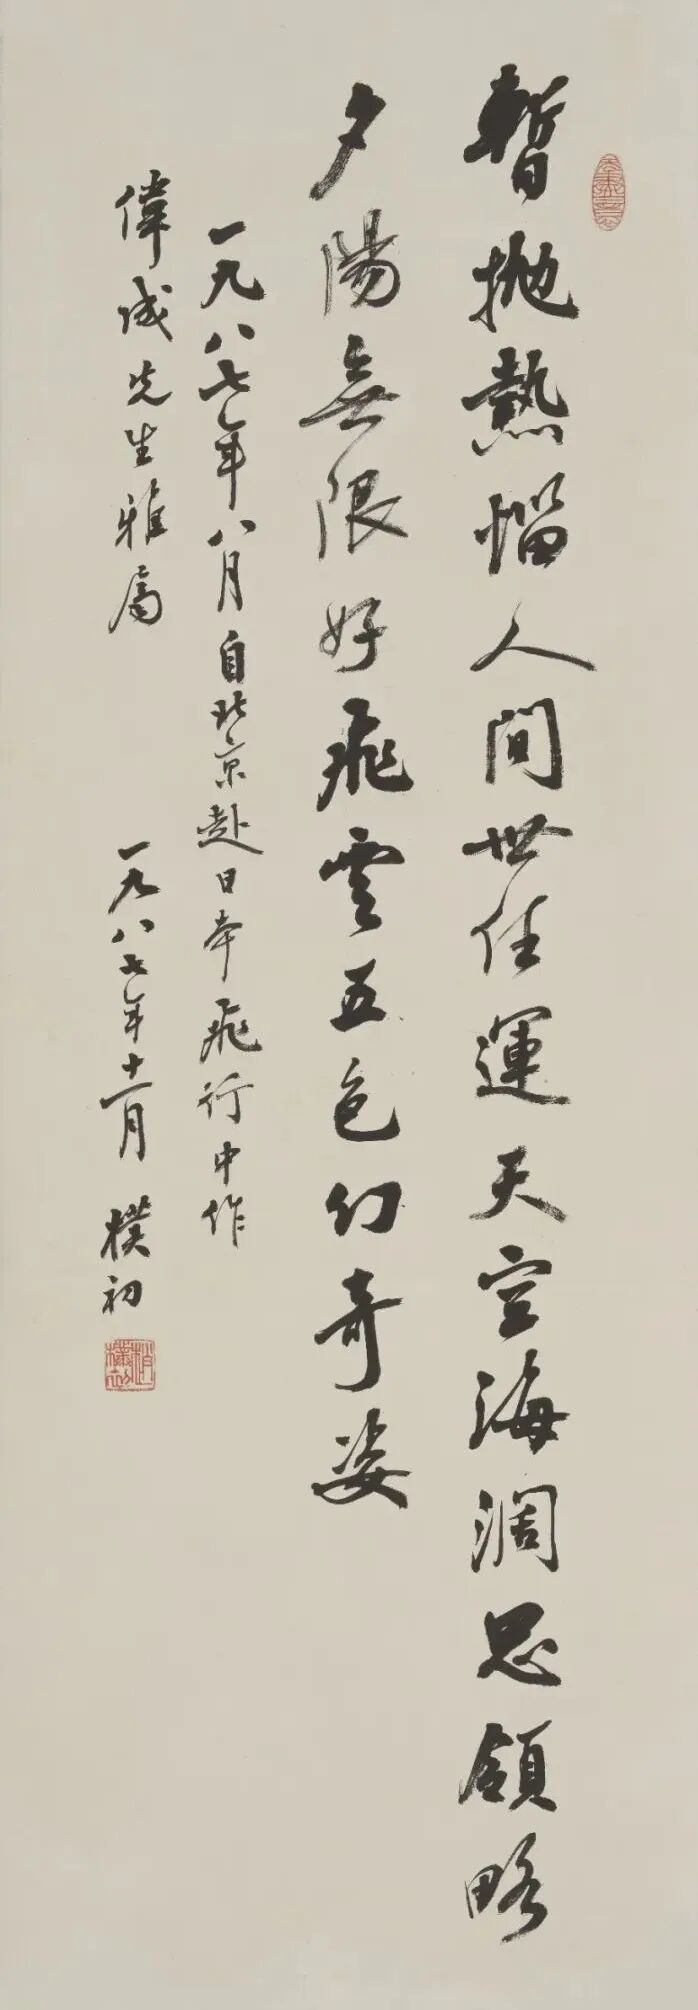 暫抛熱惱人間世任運天空海濶思領略
夕陽無限好飛雲五色幻奇姿
一九八七年八月自北京赴日本飛行中作
偉成先生雅屬
一九八七年十一月 樸初
趙樸初